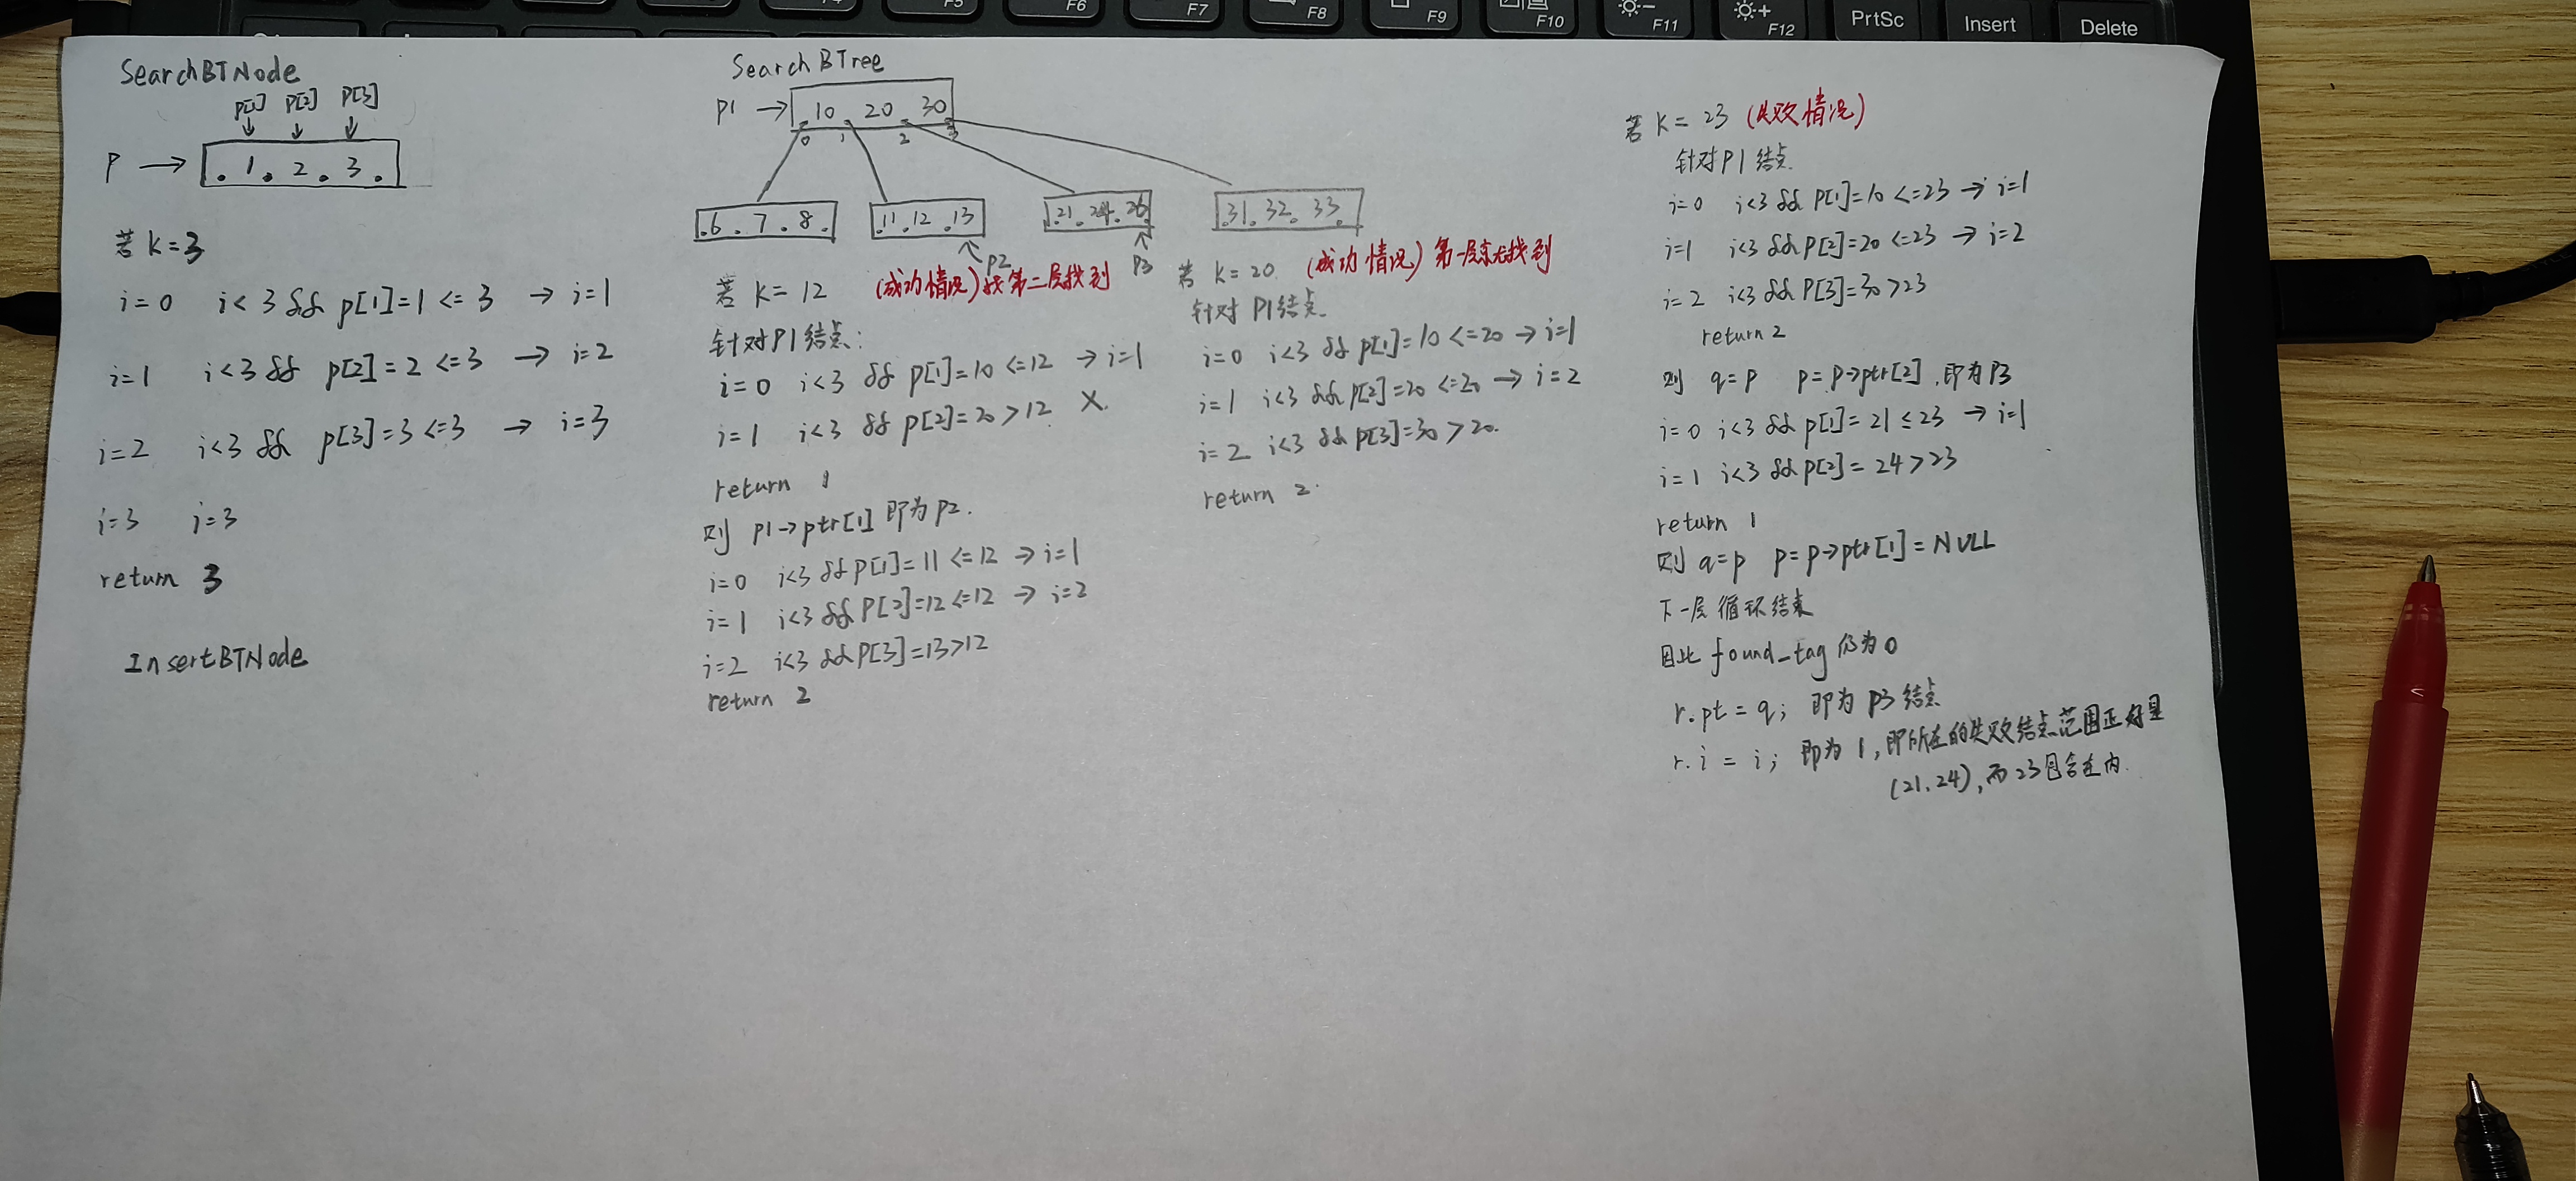 F5
F6
F7
F8
F9
F10
F11
F12
PrtSc
Insert
Delete
SearchBTNode
p[1] p[2] p[3]
P → . 1 . 2 . 3 .
若 k=3
i=0 i<3 && p[1]=1 <=3 → i=1
i=1 i<3 && p[2]=2 <=3 → i=2
i=2 i<3 && p[3]=3 <=3 → i=3
i=3 i=3
return 3
InsertBTNode
SearchBTree
P1 → . 10 . 20 . 30 .
0 1 2 3
.6 . 7 . 8 .
.11 . 12 . 13
.21 . 24 . 26.
.31. 32. 33.
P2
P3
若 k=12 (成功情况) 第二层找到
针对P1结点:
i=0 i<3 && p[1]=10 <=12 → i=1
i=1 i<3 && p[2]=20 >12 ×.
return 1
则 p1→ptr[1] 即为P2.
i=0 i<3 && p[1]=11 <=12 → i=1
i=1 i<3 && P[2]=12 <=12 → i=2
i=2 i<3 && P[3]=13>12
return 2
若 k=20. (成功情况) 第一层就找到
针对 P1结点.
i=0 i<3 && p[1]=10 <=20 → i=1
i=1 i<3 && p[2]=20 <=20 → i=2
i=2 i<3 && p[3]=30 >20.
return 2.
若 k=23 (失败情况)
针对P1结点
i=0 i<3 && p[1]=10 <=23 → i=1
i=1 i<3 && p[2]=20 <=23 → i=2
i=2 i<3 && P[3]=30 >23
return 2
则 q=p p=p→ptr[2] ,即为P3
i=0 i<3 && p[1]=21 ≤23 → i=1
i=1 i<3 && p[2]=24 >23
return 1
则 q=p p=p→ptr[1]=NULL
下一层循环结束
因此 found_tag 仍为0
r.pt = q; 即为 P3 结点
r.i = i; 即为 1, 即所在的失败结点范围正好是
(21.24), 而23包含在内.